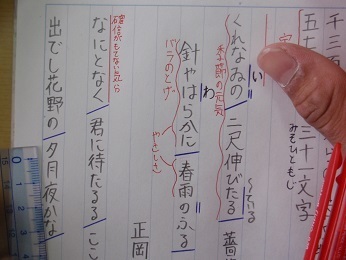 千三
五七
三十一文字
みそひともじ
くれなゐの 二尺伸びたる 薔
い
ている
季節の元気
針やはらかに 春雨のふる
わ
バラのとげ
やさしさ
正岡
なにとなく 君に待たるる ここ
出でし花野の 夕月夜かな